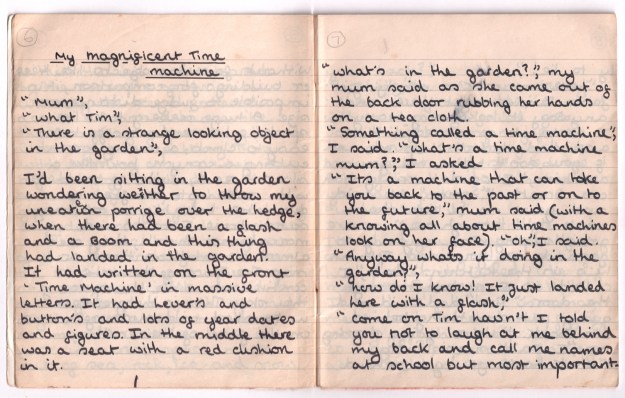 6
My magnificent Time
machine
"Mum",
"What Tim",
"There is a strange looking object
in the garden",
I'd been sitting in the garden
wondering weither to throw my
uneaten porrige over the hedge,
when there had been a flash
and a Boom and this thing
had landed in the garden.
It had written on the front
'Time Machine' in massive
letters. It had lever's and
button's and lots of year dates
and figures. In the middle there
was a seat with a red cushion
in it.
7
"what's in the garden?", my
mum said as she came out of
the back door rubbing her hands
on a tea cloth.
"Something called a time machine",
I said. "What's a time machine
mum?", I asked
"Its a machine that can take
you back to the past or on to
the future," mum said (with a
knowing all about time machines
look on her face). "oh", I said.
"Anyway whats it doing in the
garden?",
"how do I know! It just landed
here with a flash",
"come on Tim hav'n't I told
you not to laugh at me behind
my back and call me names
at school but most important-